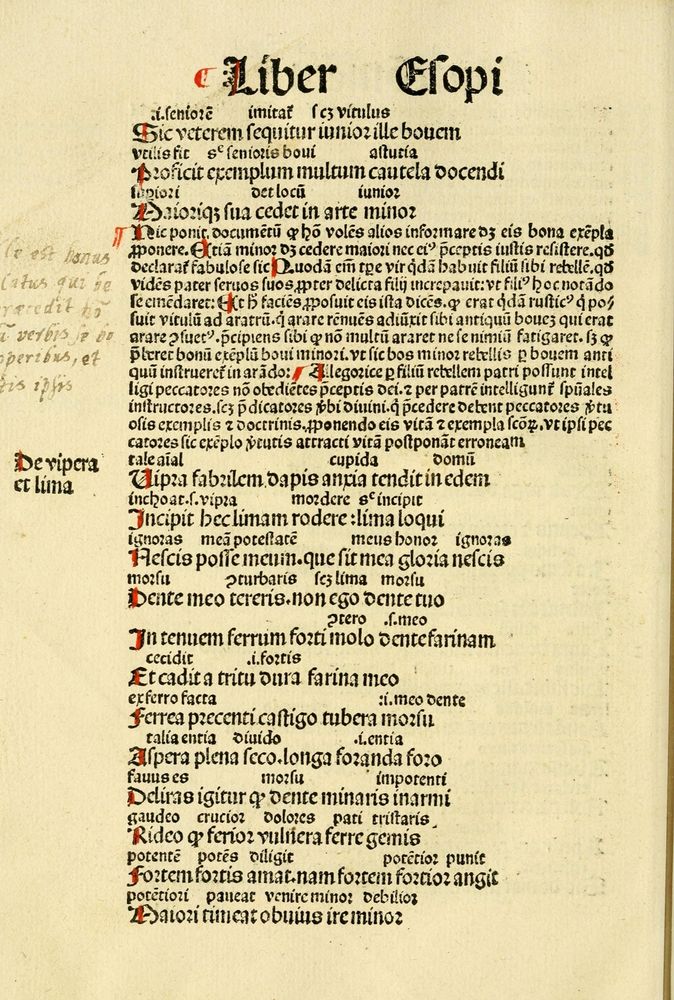 ¶ Liber Esopi
.i. seniorē imitat᷑ scꝫ vitulus
Sic veterem sequitur iunior ille bouem
vtilis fit sᶜ senioris boui astutia
Proficit exemplum multum cautela docendi
supiori det locū iunior
Maioriqꝫ sua cedet in arte minor
¶ Hic ponit. documētū ꝙ hō volēs alios informare dꝫ eis bona exēpla
ꝓponere. Etiā minor dꝫ cedere maiori nec eiꝰ p̄ceptis iustis resistere. qd̄
declarat᷑ fabulose sic Quodam em̄ tꝑe vir qd̄am habuit filiū sibi rebellē. qd̄
vidēs pater seruos suos ꝓpter delicta filij increpauit: vt filiꝰ hoc notādo
se emēdaret: Et hͦ faciēs, ꝓposuit eis ista dicēs. ꝙ erat qd̄am rusticꝰ q̇ po/
suit vitulū ad aratrū. q̇ arare rēnuēs adiūxit sibi antiquū bouez qui erat
arare ꝯsuetꝰ. p̄cipiens sibi ꝙ nō multū araret ne se nimiū fatigaret. sꝫ ꝙ
p̄beret bonū exēplū boui minori. vt sic bos minor rebellis ꝑ bouem anti
quū instrueret᷑ in arādo: ¶ Allegorice ꝑ filiū rebellem patri possunt intel
ligi peccatores nō obediētes p̄ceptis dei. ⁊ per patrē intelligunt᷑ spūales
instructores. scꝫ p̄dicatores ꝟbi diuini. q̇ p̄cedere debent peccatores ꝟtu
osis exemplis ⁊ doctrinis. ꝓponendo eis vitā ⁊ exempla scōꝝ. vt ipsi pec
catores sic exēplo ꝟtutis attracti vitā postponāt erroneam
tale aīal cupida domū
De vipera
et lima
Uipra fabrilem dapis anxia tendit in edem
inchoat. s. vipra mordere sᶜ incipit
Incipit hec limam rodere: lima loqui
ignoras meā potestatē meus honor ignoras
Nescis posse meum. que sit mea gloria nescis
morsu ꝯturbaris scꝫ lima morsu
Dente meo tereris. non ego dente tuo
ꝯtero .s. meo
In tenuem ferrum forti molo dente farinam
cecidit .i. fortis
Et cadit a tritu dura farina meo
ex ferro facta :i. meo dente
Ferrea precenti castigo tubera morsu
talia entia diuido .i. entia
Aspera plena seco. longa foranda foro
fauus es morsu impotenti
Deliras igitur ꝙ dente minaris inarmi
gaudeo crucior dolores pati tristaris
Rideo ꝙ ferior vulnera ferre gemis
potentē potēs diligit potētior punit
Fortem fortis amat. nam fortem fortior angit
potētiori paueat venire minor debilior
Maiori timeat obuius ire minor
est bonus